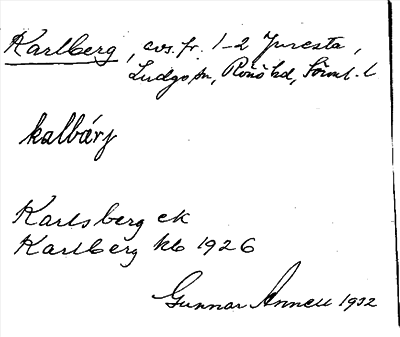 Karlberg, avs. fr. 1-2 Juresta,
Ludgo sn, Rönö hd, Söml. l
kalbärj
Karlsberg ek
Karlberg kb 1926
Gunnar Annell 1932